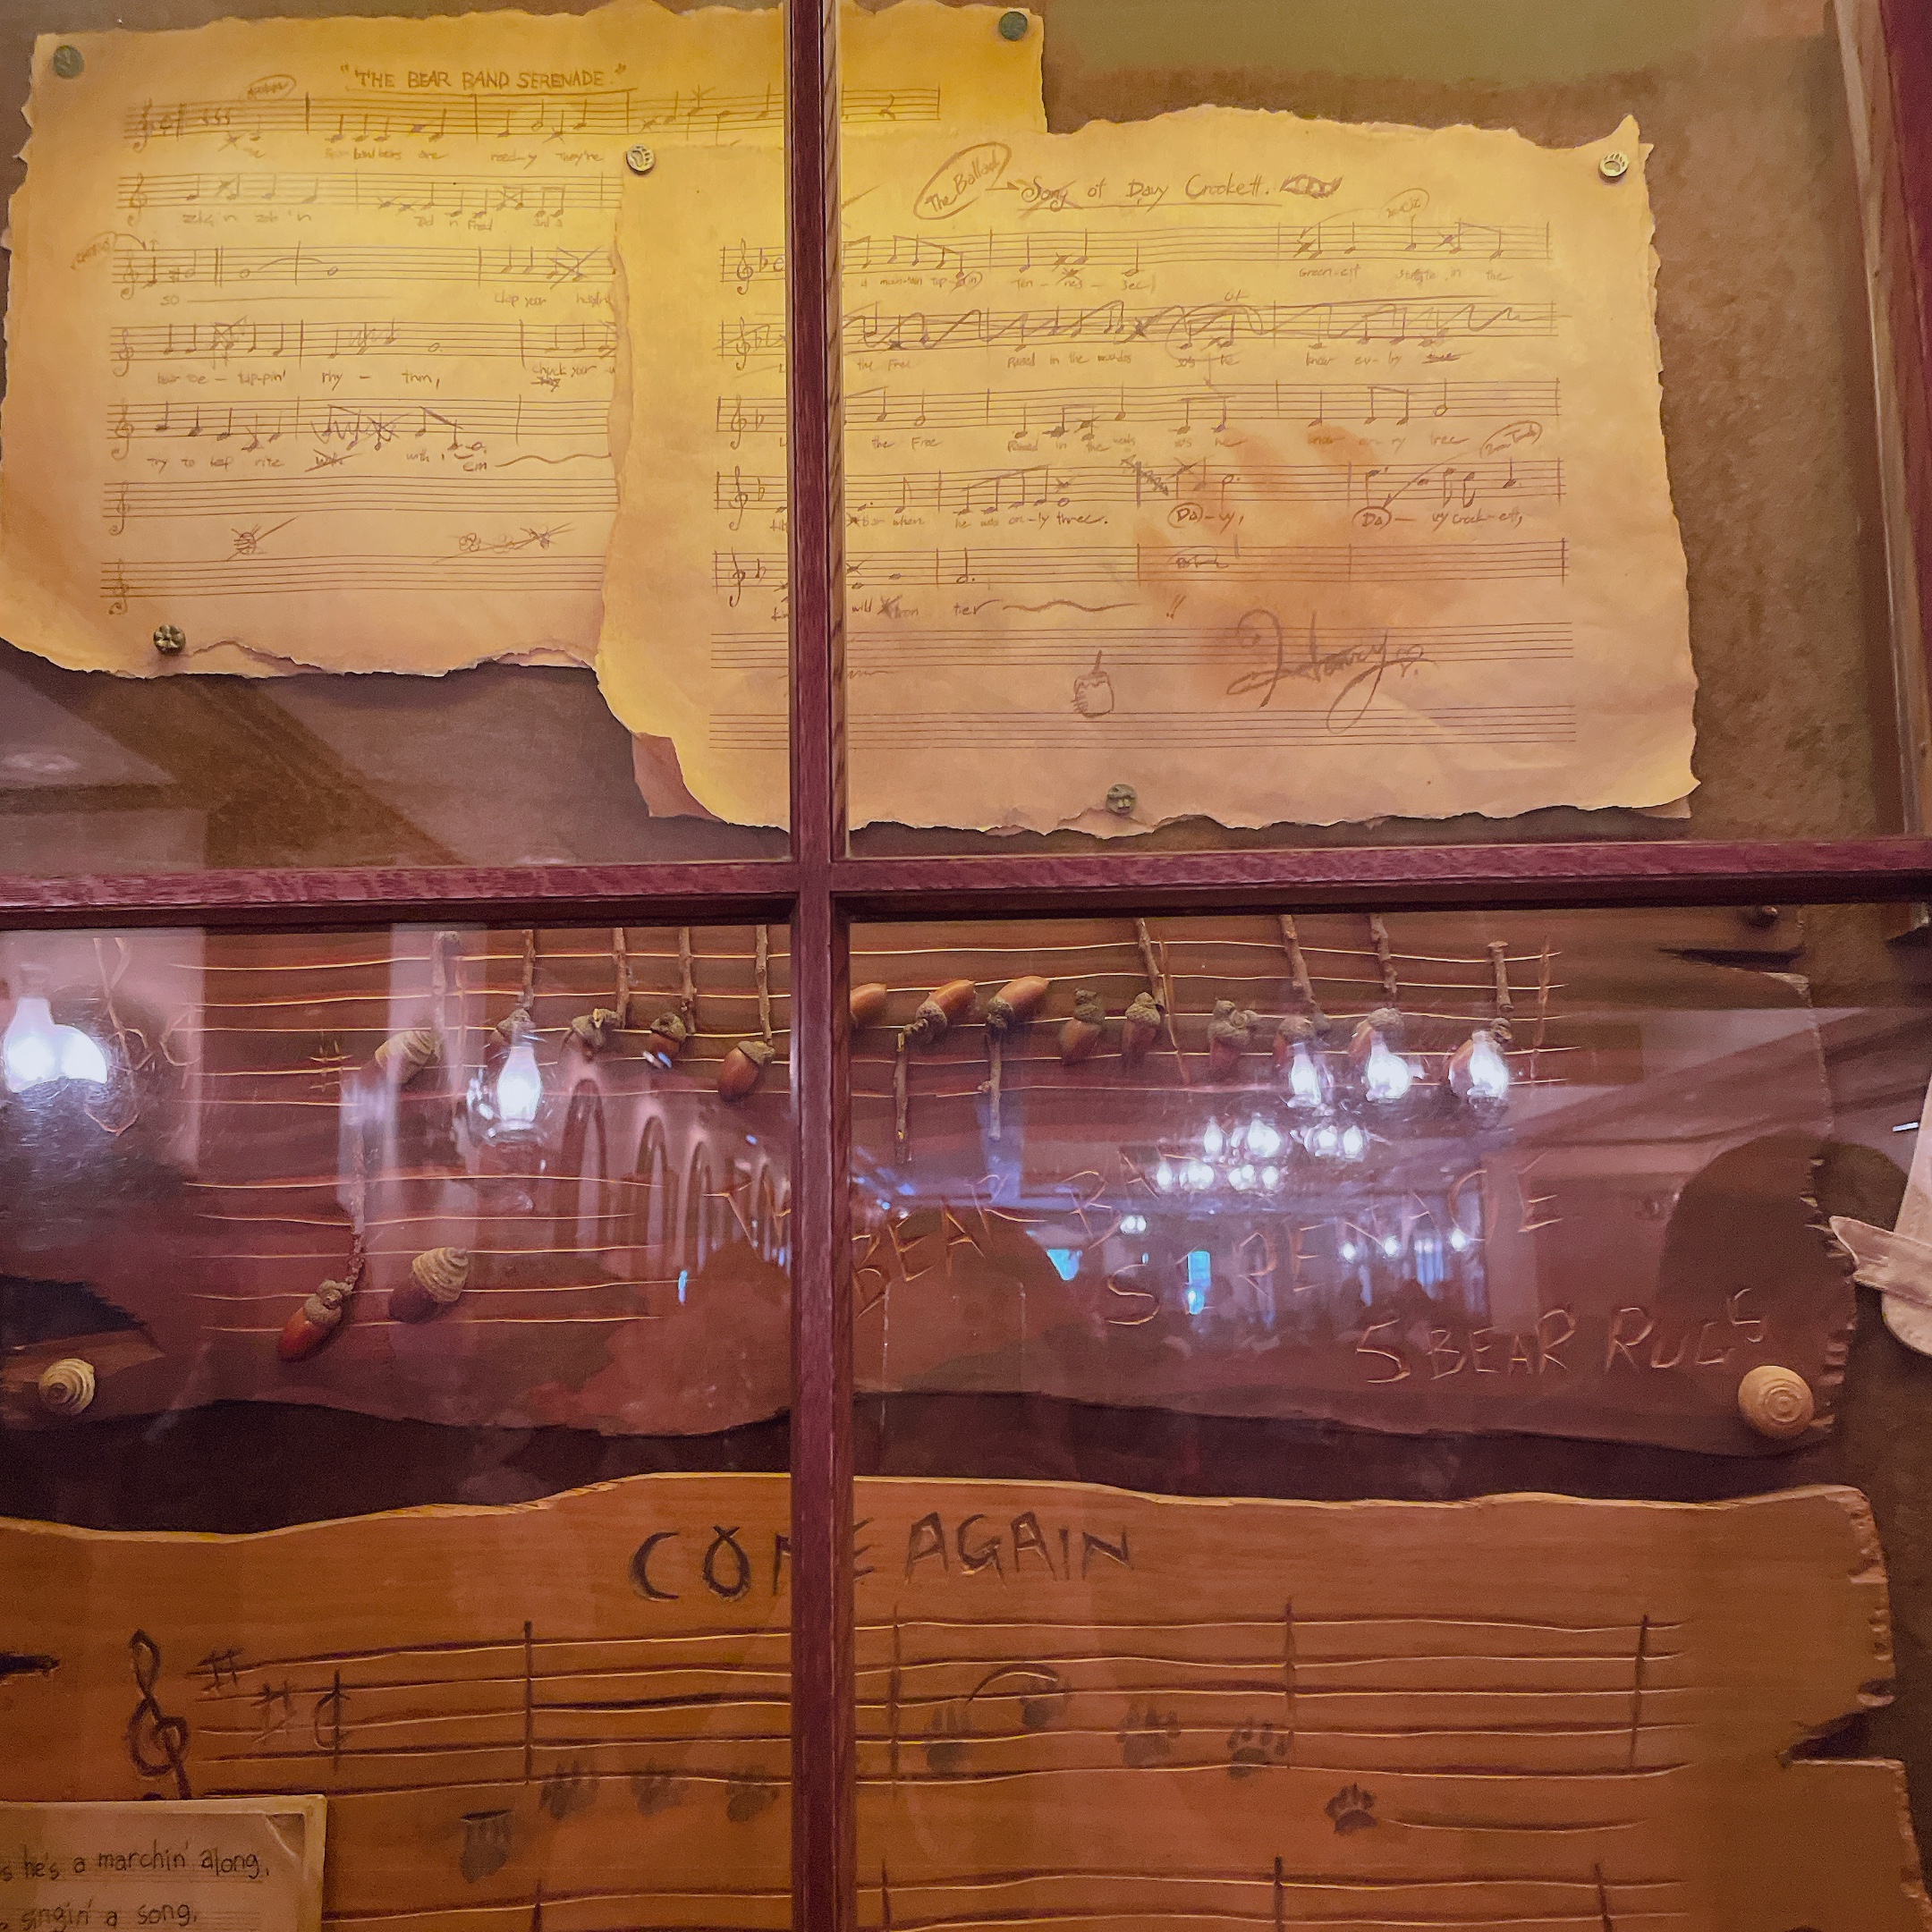 "THE BEAR BAND SERENADE."
The Bear band bears are ready They're
zeke 'n zeb 'n Ted 'n Fred
so clap your
your toe - tappin' rhy - thm, chuck your
Try to keep rite with with 'em
The Ballad Song of Davy Crockett.
a moun-tain top in Ten - nes - see Green-est state in the
the Free Raised in the woods so's he knew ev-'ry
the Free Raised in the woods so's he knew ev-'ry tree
b'ar when he was on-ly three. Da-vy, Da-vy Crock-ett,
wild fron tier !!
Henry
THE BEAR BAND
SERENADE
5 BEAR RUGS
COME AGAIN
he's a marchin' along,
singin' a song,